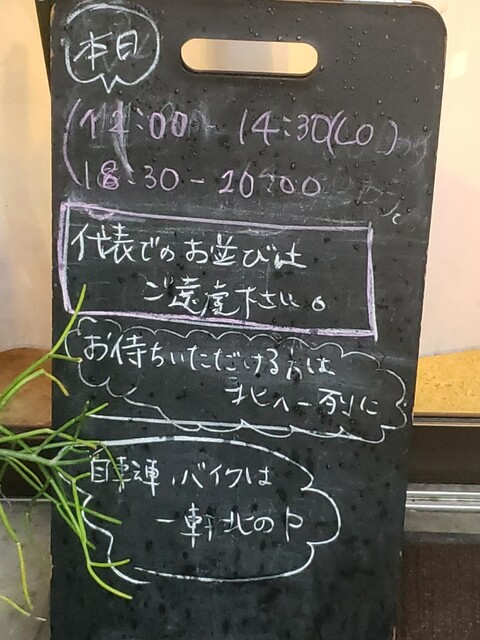 本日
12:00 - 14:30(LO)
18:30 - 20:00
代表でのお並びは
ご遠慮下さい。
お待ちいただける方は
北へ一列に
自転車、バイクは
一軒北の